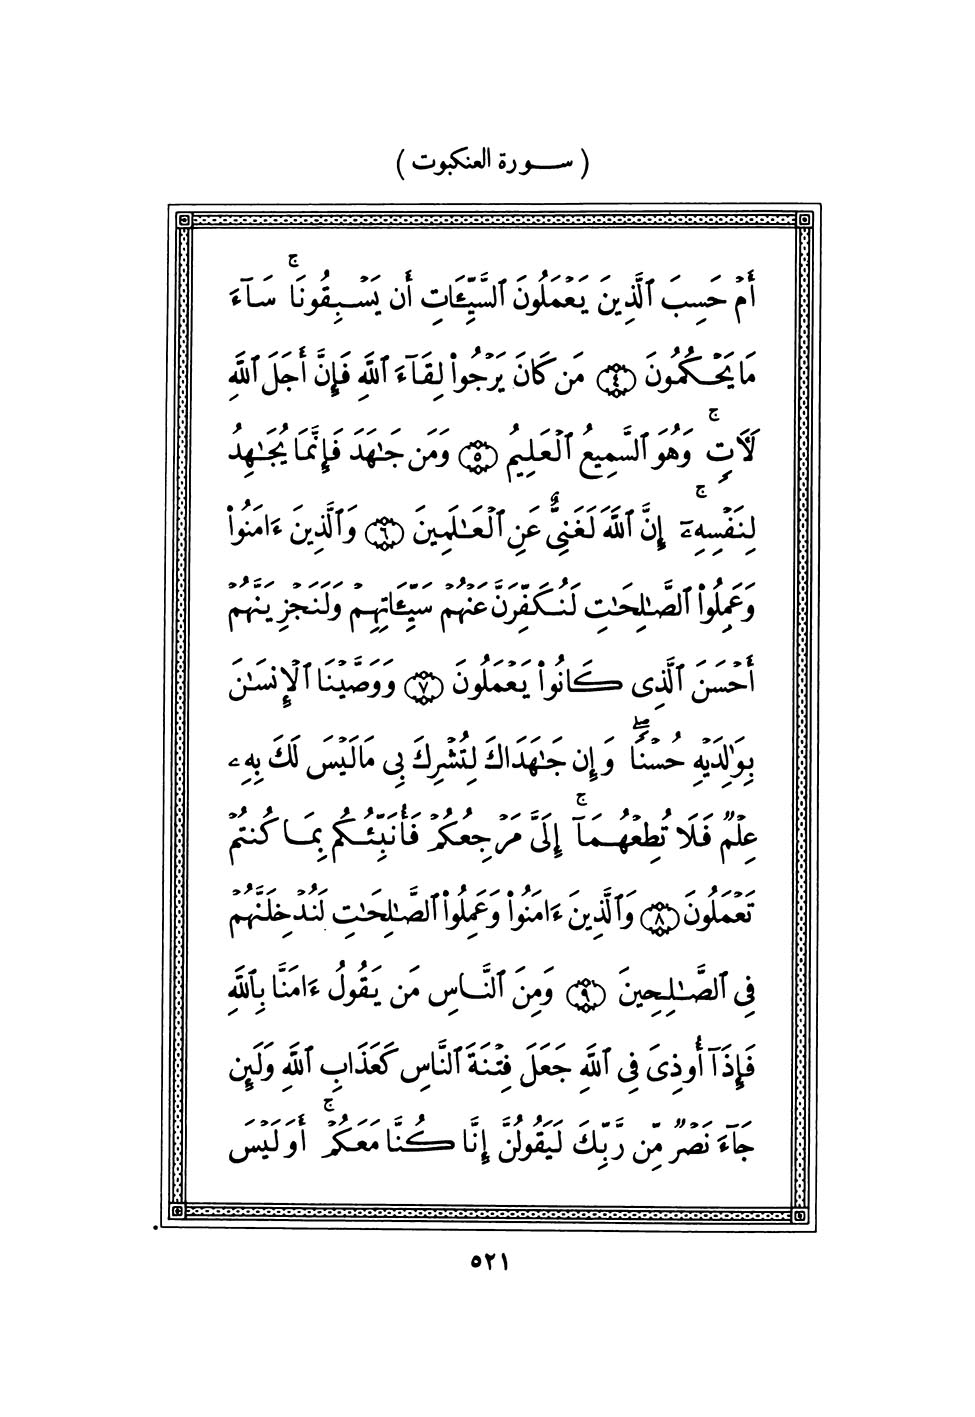 ( ســورة العنكبوت )
أَمْ حَسِبَ ٱلَّذِينَ يَعْمَلُونَ ٱلسَّيِّـَٔاتِ أَن يَسْبِقُونَاۚ سَآءَ
مَا يَحْكُمُونَ ﴿٤﴾ مَن كَانَ يَرْجُوا۟ لِقَآءَ ٱللَّهِ فَإِنَّ أَجَلَ ٱللَّهِ
لَـَٔاتٍۚ وَهُوَ ٱلسَّمِيعُ ٱلْعَلِيمُ ﴿٥﴾ وَمَن جَـٰهَدَ فَإِنَّمَا يُجَـٰهِدُ
لِنَفْسِهِۦٓۚ إِنَّ ٱللَّهَ لَغَنِىٌّ عَنِ ٱلْعَـٰلَمِينَ ﴿٦﴾ وَٱلَّذِينَ ءَامَنُوا۟
وَعَمِلُوا۟ ٱلصَّـٰلِحَـٰتِ لَنُكَفِّرَنَّ عَنْهُمْ سَيِّـَٔاتِهِمْ وَلَنَجْزِيَنَّهُمْ
أَحْسَنَ ٱلَّذِى كَانُوا۟ يَعْمَلُونَ ﴿٧﴾ وَوَصَّيْنَا ٱلْإِنسَـٰنَ
بِوَٰلِدَيْهِ حُسْنًاۖ وَإِن جَـٰهَدَاكَ لِتُشْرِكَ بِى مَا لَيْسَ لَكَ بِهِۦ
عِلْمٌ فَلَا تُطِعْهُمَآۚ إِلَىَّ مَرْجِعُكُمْ فَأُنَبِّئُكُم بِمَا كُنتُمْ
تَعْمَلُونَ ﴿٨﴾ وَٱلَّذِينَ ءَامَنُوا۟ وَعَمِلُوا۟ ٱلصَّـٰلِحَـٰتِ لَنُدْخِلَنَّهُمْ
فِى ٱلصَّـٰلِحِينَ ﴿٩﴾ وَمِنَ ٱلنَّاسِ مَن يَقُولُ ءَامَنَّا بِٱللَّهِ
فَإِذَآ أُوذِىَ فِى ٱللَّهِ جَعَلَ فِتْنَةَ ٱلنَّاسِ كَعَذَابِ ٱللَّهِ وَلَئِن
جَآءَ نَصْرٌ مِّن رَّبِّكَ لَيَقُولُنَّ إِنَّا كُنَّا مَعَكُمْۚ أَوَلَيْسَ
٥٢١